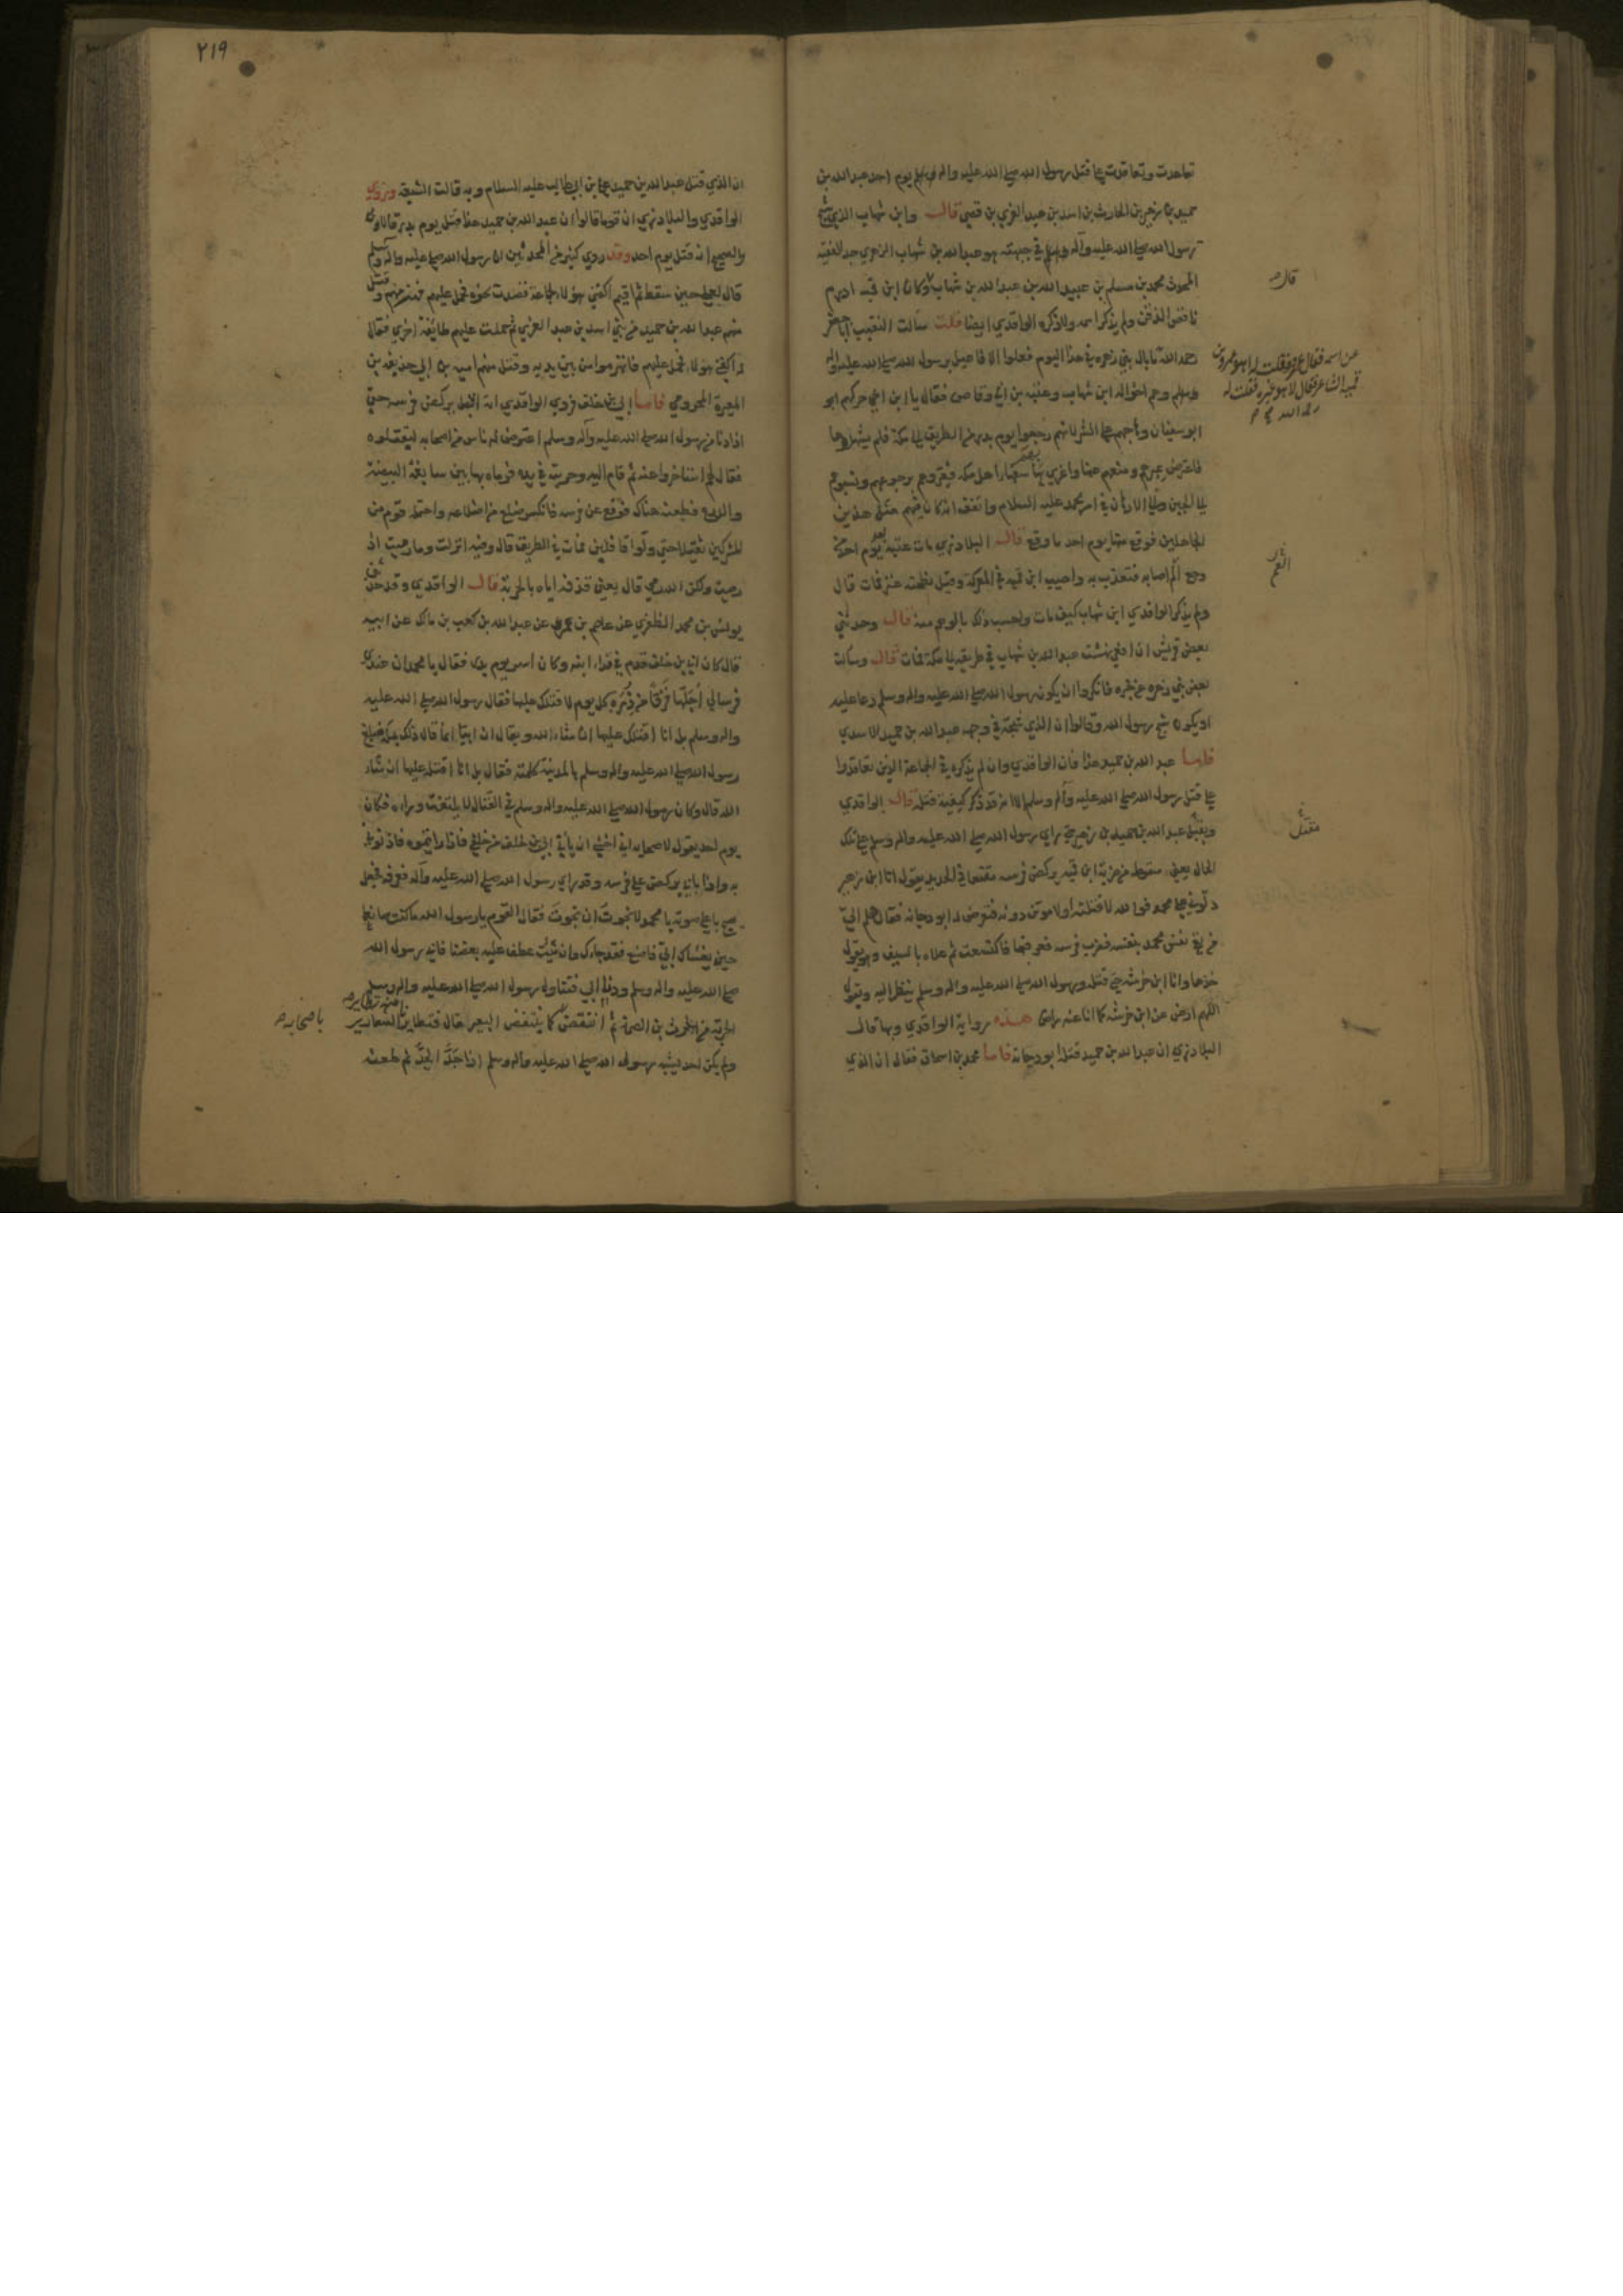 تعاهدت وتعاقدت على قتل رسول الله صلى الله عليه وآله وسلم يوم احد عبد الله بن
حميد بن زهير بن الحارث بن اسد بن عبد العزي بن قصي قال وابن شهاب الذي شج
رسول الله صلى الله عليه وآله وسلم في جبهته هو عبد الله بن شهاب الزهري جد الفقيه
المحدث محمد بن مسلم بن عبيد الله بن عبد الله بن شهاب وكان ابن قميه ادرم
ناقص الذقن ولم يذكر اسمه ولا ذكره الواقدي ايضا قلت سألت النقيب ابا جعفر
رحمه الله ما بال بني زهره في هذا اليوم فعلوا الافاعيل برسول الله صلى الله عليه وآله
وسلم وهم اخواله ابن شهاب وعتبه بن ابي وقاص فقال يا ابن اخي حركهم ابو
ابو سفيان وهاجهم على الشر لانهم رجعوا يوم بدر من الطريق الى مكة فلم يشهدوها
فاعترض عيرهم ومنعهم عنها واغري بها سفهاء اهل مكه فعيروهم برجوعهم ونسبوهم
الى الجبن والى الادهان في امر محمد عليه السلام واتفق انه كان فيهم مثل هذين
الجاهلين فوقع منها يوم احد ما وقع قال البلاذري مات عتبة يوم احد من
وجع اليم اصابه فتعذب به واصيب ابن قميه في المعركة وقيل نطحته عنز فمات قال
ولم يذكر الواقدي ابن شهاب كيف مات واحسب ذلك بالوهم منه قال وحدثني
بعض قريش ان افعى نهشت عبد الله بن شهاب في طريقه الى مكة فمات قال وسألت
بعض بني زهره عن خبره فانكروا ان يكون رسول الله صلى الله عليه وآله وسلم دعا عليه
او يكون شج رسول الله وقالوا ان الذي شجه في وجهه عبد الله بن حميد الاسدي
فاما عبد الله بن حميد هذا فان الواقدي وان لم يذكره في الجماعة الذين تعاقدوا
على قتل رسول الله صلى الله عليه وآله وسلم الا انه قد ذكر كيفية قتله قال الواقدي
ويقبل عبد الله بن حميد بن زهير حين راي رسول الله صلى الله عليه وآله وسلم على تلك
الحال يعني سقوطه من ضربة ابن قميه يركض فرسه مقنعا في الحديد يقول انا ابن زهير
دلوني على محمد فوالله لاقتلنه او لاموتن دونه فتعرض له ابو دجانه فقال هلم الي
من يقي نفس محمد بنفسه فضرب فرسه فعرقبها فاكتسعت ثم علاه بالسيف وهو يقول
خذها وانا ابن خرشه حتى قتله ورسول الله صلى الله عليه وآله وسلم ينظر اليه ويقول
اللهم ارض عن ابن خرشه كما انا عنه راض هذه رواية الواقدي وبها قال
البلاذري ان عبد الله بن حميد قتله ابو دجانة فاما محمد بن اسحاق فقال ان الذي
قال
عن اسمه فقال عمرو فقلت له اهو عمرو بن
قميه الشاعر فقال لا هو غيره فقلت له
مقتل
٢١٩
ان الذي قتل عبد الله بن حميد علي بن ابي طالب عليه السلام وبه قالت الشيعة وروي
الواقدي والبلاذري ان قوما قالوا ان عبد الله بن حميد هذا قتل يوم بدر قالا
والصحيح انه قتل يوم احد وقد روي كثير من المحدثين ان رسول الله صلى الله عليه وآله وسلم
قال لعلي حين سقط ثم اقيم اكفني هؤلاء لجماعة قصدت نحوه فحمل عليهم فهزمهم وقتل
منهم عبد الله بن حميد من بني اسد بن عبد العزي ثم حملت عليهم طائفة اخري فقال
له اكفني هؤلاء فحمل عليهم فانهزموا من بين يديه وقتل منهم امية بن ابي حذيفة بن
المغيرة المخزومي فاما ابي بن خلف فروي الواقدي انه اقبل يركض فرسه حتى
اذا دنا من رسول الله صلى الله عليه وآله وسلم اعترض له ناس من اصحابه ليقتلوه
فقال لهم استاخروا عنه ثم قام اليه وحربته في يده فرماه بها بين سابغة البيضة
والدرع فطعنه هناك فوقع عن فرسه فانكسر ضلع من اضلاعه واحتمله قوم من
المشركين ثقيلا حتى ولوا قافلين فمات في الطريق قال وفيه انزلت وما رميت اذ
رميت ولكن الله رمى قال يعني قذفه اياه بالحربة قال الواقدي وقد حدثني
يونس بن محمد الظفري عن عاصم بن عمر عن عبد الله بن كعب بن مالك عن ابيه
قال كان ابي بن خلف قدم في فداء ابنه وكان اسر يوم بدر فقال يا محمد ان عندي
فرسا لي اجلها فرقا من ذرة كل يوم لاقتلك عليها فقال رسول الله صلى الله عليه
وآله وسلم بل انا اقتلك عليها ان شاء الله ويقال ان ابيا انما قال ذلك بمكة فبلغ
رسول الله صلى الله عليه وآله وسلم بالمدينة كلمته فقال بل انا اقتله عليها ان شاء
الله قال وكان رسول الله صلى الله عليه وآله وسلم في القتال لا يلتفت وراءه فكان
يوم احد يقول لاصحابه اني اخشى ان يأتي ابي بن خلف من خلفي فاذا رايتموه فاذنوني
به واذا بابي يركض على فرسه وقد راي رسول الله صلى الله عليه وآله فعرفه فجعل
يصيح باعلى صوته يا محمد لا نجوت ان نجوت فقال القوم يا رسول الله ما كنت صانعا
حين يغشاك ابي فاصنع فقد جاءك وان شئت عطف عليه بعضنا فابى رسول الله
صلى الله عليه وآله وسلم ودنا ابي فتناول رسول الله صلى الله عليه وآله وسلم
الحربة من الحرث بن الصمة ثم انتفض كما ينتفض البعير قال فتطاير
ولم يكن احد يشبه رسول الله صلى الله عليه وآله وسلم اذا جد الجد ثم طعنه
باصحابه